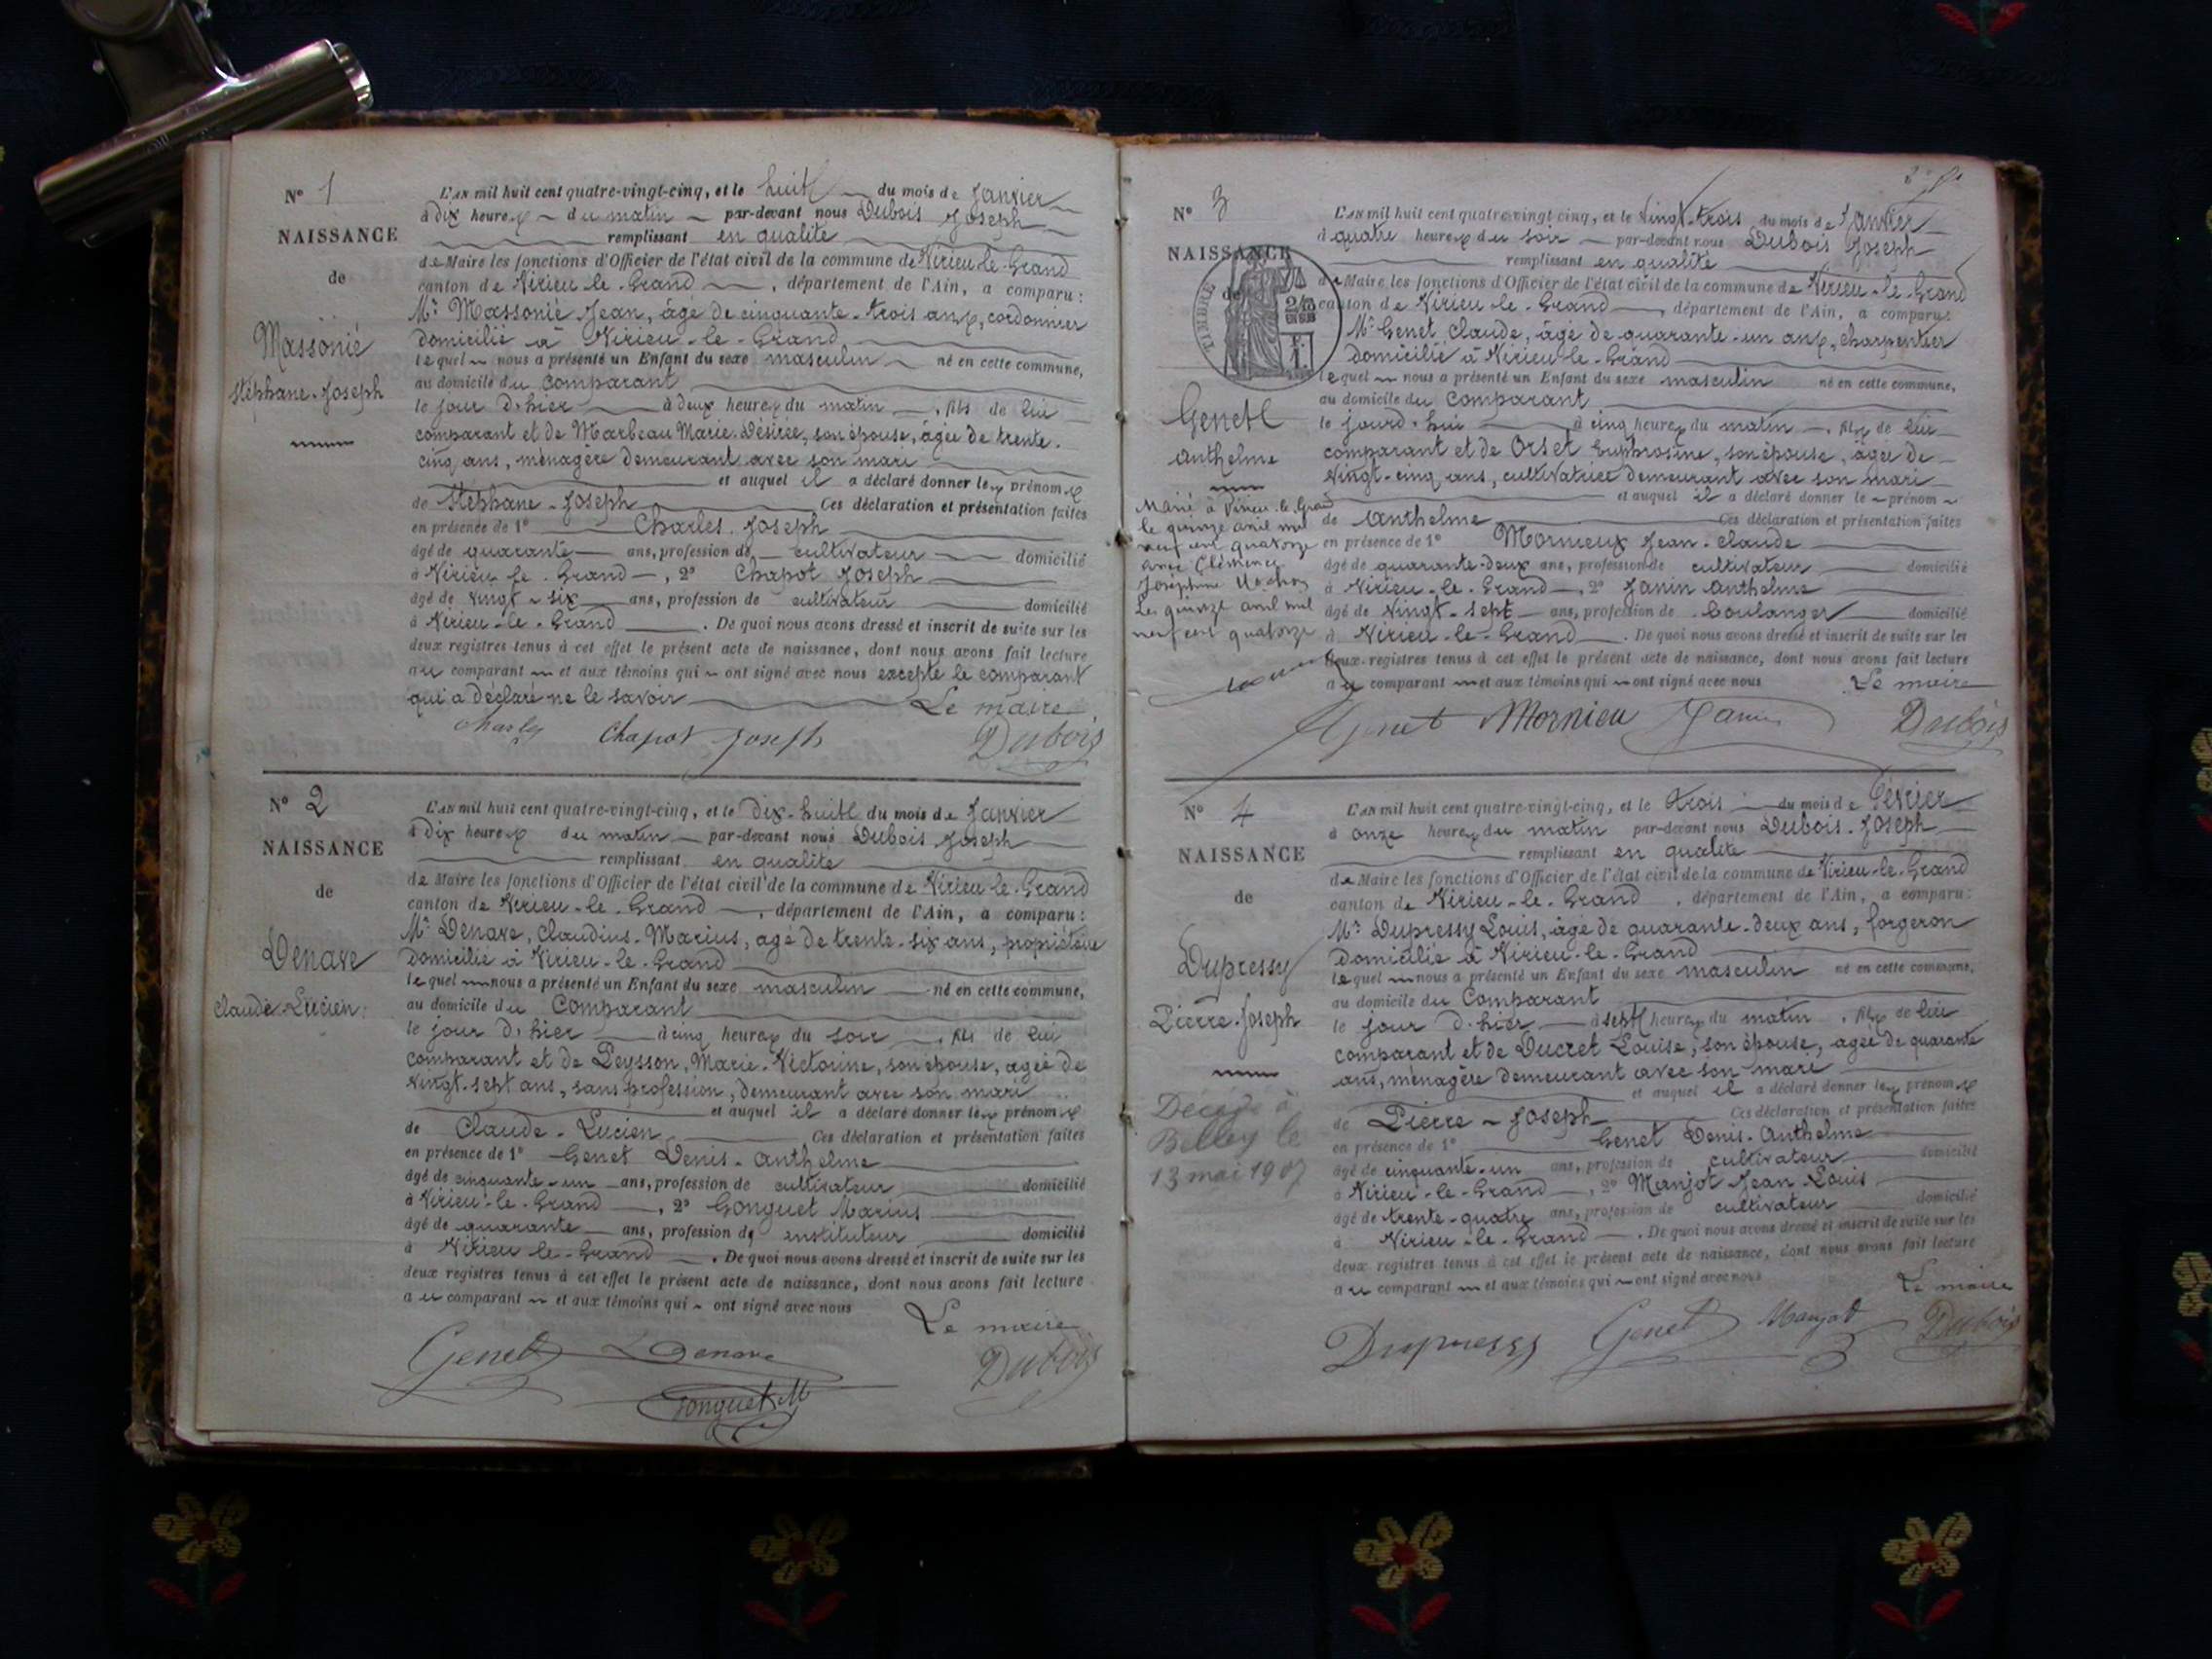 N° 1
NAISSANCE
de
Massonié
Stéphane-Joseph
L'AN mil huit cent quatre-vingt-cinq, et le huit du mois de Janvier
à dix heures du matin par-devant nous Dubois Joseph
remplissant en qualité
de Maire les fonctions d'Officier de l'état civil de la commune de Virieu-le-Grand
canton de Virieu-le-Grand, département de l'Ain, a comparu:
Mr Massonié Jean, âgé de cinquante-trois ans, cordonnier
domicilié à Virieu-le-Grand
lequel nous a présenté un Enfant du sexe masculin né en cette commune,
au domicile du Comparant
le jour d'hier à deux heures du matin, fils de lui
comparant et de Marbeau Marie-Désirée, son épouse, âgée de trente-
cinq ans, ménagère demeurant avec son mari
et auquel il a déclaré donner les prénoms
de Stéphane-Joseph Ces déclaration et présentation faites
en présence de 1° Charles Joseph
âgé de quarante ans, profession de cultivateur domicilié
à Virieu-le-Grand, 2° Chapot Joseph
âgé de vingt-six ans, profession de cultivateur domicilié
à Virieu-le-Grand. De quoi nous avons dressé et inscrit de suite sur les
deux registres tenus à cet effet le présent acte de naissance, dont nous avons fait lecture
au comparant et aux témoins qui ont signé avec nous excepté le comparant
qui a déclaré ne le savoir Le maire
Charles Chapot Joseph Dubois
N° 2
NAISSANCE
de
Denave
Claude-Lucien
L'AN mil huit cent quatre-vingt-cinq, et le dix-huit du mois de Janvier
à dix heures du matin par-devant nous Dubois Joseph
remplissant en qualité
de Maire les fonctions d'Officier de l'état civil de la commune de Virieu-le-Grand
canton de Virieu-le-Grand, département de l'Ain, a comparu:
Mr Denave, Claudius-Marius, âgé de trente-six ans, propriétaire
domicilié à Virieu-le-Grand
lequel nous a présenté un Enfant du sexe masculin né en cette commune,
au domicile du Comparant
le jour d'hier à cinq heures du soir, fils de lui
comparant et de Peysson, Marie-Victorine, son épouse, âgée de
vingt-sept ans, sans profession, demeurant avec son mari
et auquel il a déclaré donner les prénoms
de Claude-Lucien Ces déclaration et présentation faites
en présence de 1° Genet Denis-Anthelme
âgé de cinquante-un ans, profession de cultivateur domicilié
à Virieu-le-Grand, 2° Gonguet Marius
âgé de quarante ans, profession de instituteur domicilié
à Virieu-le-Grand. De quoi nous avons dressé et inscrit de suite sur les
deux registres tenus à cet effet le présent acte de naissance, dont nous avons fait lecture
au comparant et aux témoins qui ont signé avec nous
Le maire
Genet Denave Dubois
Gonguet M
N° 3
NAISSANCE
de
TIMBRE
Genet
Anthelme
Marié à Virieu-le-Grand
le quinze avril mil
neuf cent quatorze
avec Clémence
Joséphine
Le quinze avril mil
neuf cent quatorze
L'AN mil huit cent quatre-vingt-cinq, et le vingt-trois du mois de Janvier
à quatre heures du soir par-devant nous Dubois Joseph
remplissant en qualité
de Maire les fonctions d'Officier de l'état civil de la commune de Virieu-le-Grand
canton de Virieu-le-Grand, département de l'Ain, a comparu:
Mr Genet Claude, âgé de quarante-un ans, charpentier
domicilié à Virieu-le-Grand
lequel nous a présenté un Enfant du sexe masculin né en cette commune,
au domicile du Comparant
le jourd'hui à cinq heures du matin, fils de lui
comparant et de Orset Euphrosine, son épouse, âgée de
vingt-cinq ans, cultivatrice demeurant avec son mari
et auquel il a déclaré donner le prénom
de Anthelme Ces déclaration et présentation faites
en présence de 1° Mornieux Jean-Claude
âgé de quarante-deux ans, profession de cultivateur domicilié
à Virieu-le-Grand, 2° Janin Anthelme
âgé de vingt-sept ans, profession de boulanger domicilié
à Virieu-le-Grand. De quoi nous avons dressé et inscrit de suite sur les
deux registres tenus à cet effet le présent acte de naissance, dont nous avons fait lecture
au comparant et aux témoins qui ont signé avec nous Le maire
Genet Mornieu Janin Dubois
N° 4
NAISSANCE
de
Dupressy
Pierre-Joseph
Décédé à
Belley le
13 mai 1907
L'AN mil huit cent quatre-vingt-cinq, et le trois du mois de Février
à onze heures du matin par-devant nous Dubois Joseph
remplissant en qualité
de Maire les fonctions d'Officier de l'état civil de la commune de Virieu-le-Grand
canton de Virieu-le-Grand, département de l'Ain, a comparu:
Mr Dupressy Louis, âgé de quarante-deux ans, forgeron
domicilié à Virieu-le-Grand
lequel nous a présenté un Enfant du sexe masculin né en cette commune,
au domicile du Comparant
le jour d'hier à sept heures du matin, fils de lui
comparant et de Ducret Louise, son épouse, âgée de quarante
ans, ménagère demeurant avec son mari
et auquel il a déclaré donner les prénoms
de Pierre-Joseph Ces déclaration et présentation faites
en présence de 1° Genet Denis-Anthelme
âgé de cinquante-un ans, profession de cultivateur domicilié
à Virieu-le-Grand, 2° Manjot Jean Louis
âgé de trente-quatre ans, profession de cultivateur domicilié
à Virieu-le-Grand. De quoi nous avons dressé et inscrit de suite sur les
deux registres tenus à cet effet le présent acte de naissance, dont nous avons fait lecture
au comparant et aux témoins qui ont signé avec nous
Le maire
Dupressy Genet Manjot Dubois